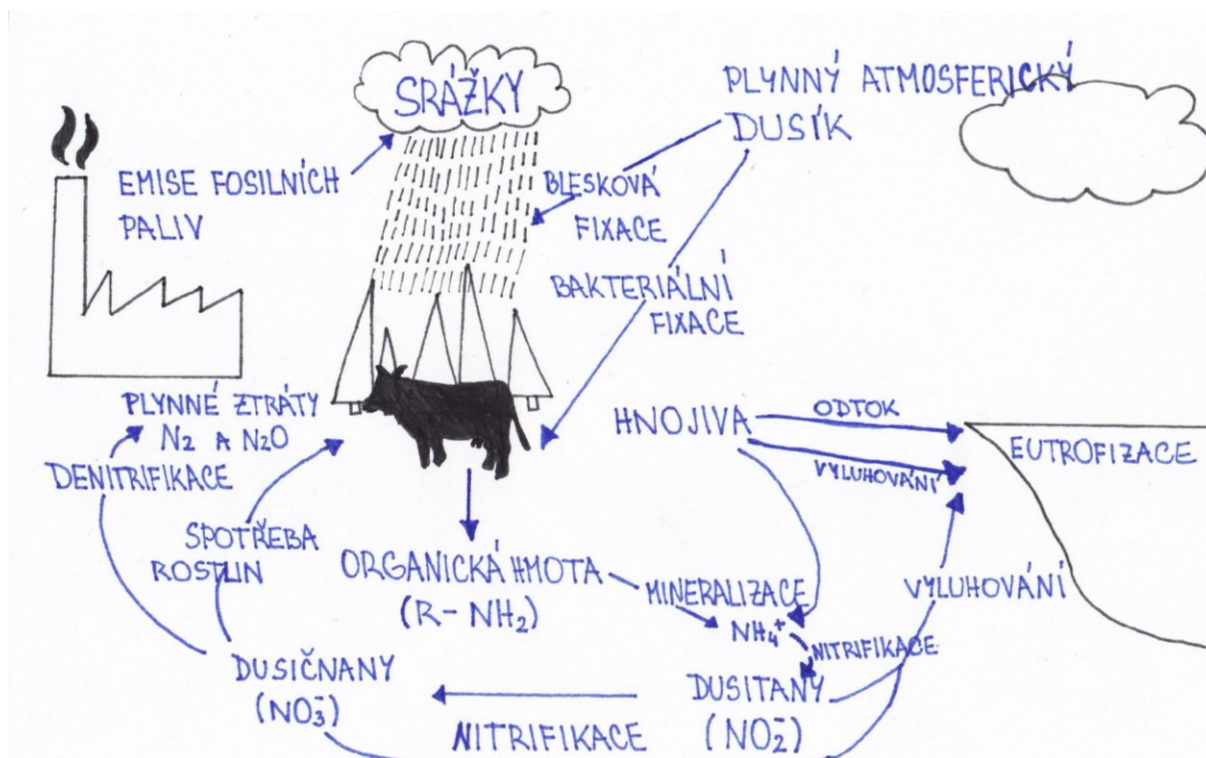 SRÁŽKY
PLYNNÝ ATMOSFERICKÝ
DUSÍK
EMISE FOSILNÍCH
PALIV
BLESKOVÁ
FIXACE
BAKTERIÁLNÍ
FIXACE
PLYNNÉ ZTRÁTY
N₂ A N₂O
DENITRIFIKACE
HNOJIVA
ODTOK
VYLUHOVÁNÍ
EUTROFIZACE
SPOTŘEBA
ROSTLIN
ORGANICKÁ HMOTA
(R-NH₂)
MINERALIZACE
NH₄⁺
NITRIFIKACE
VYLUHOVÁNÍ
DUSIČNANY
(NO₃⁻)
DUSITANY
(NO₂⁻)
NITRIFIKACE